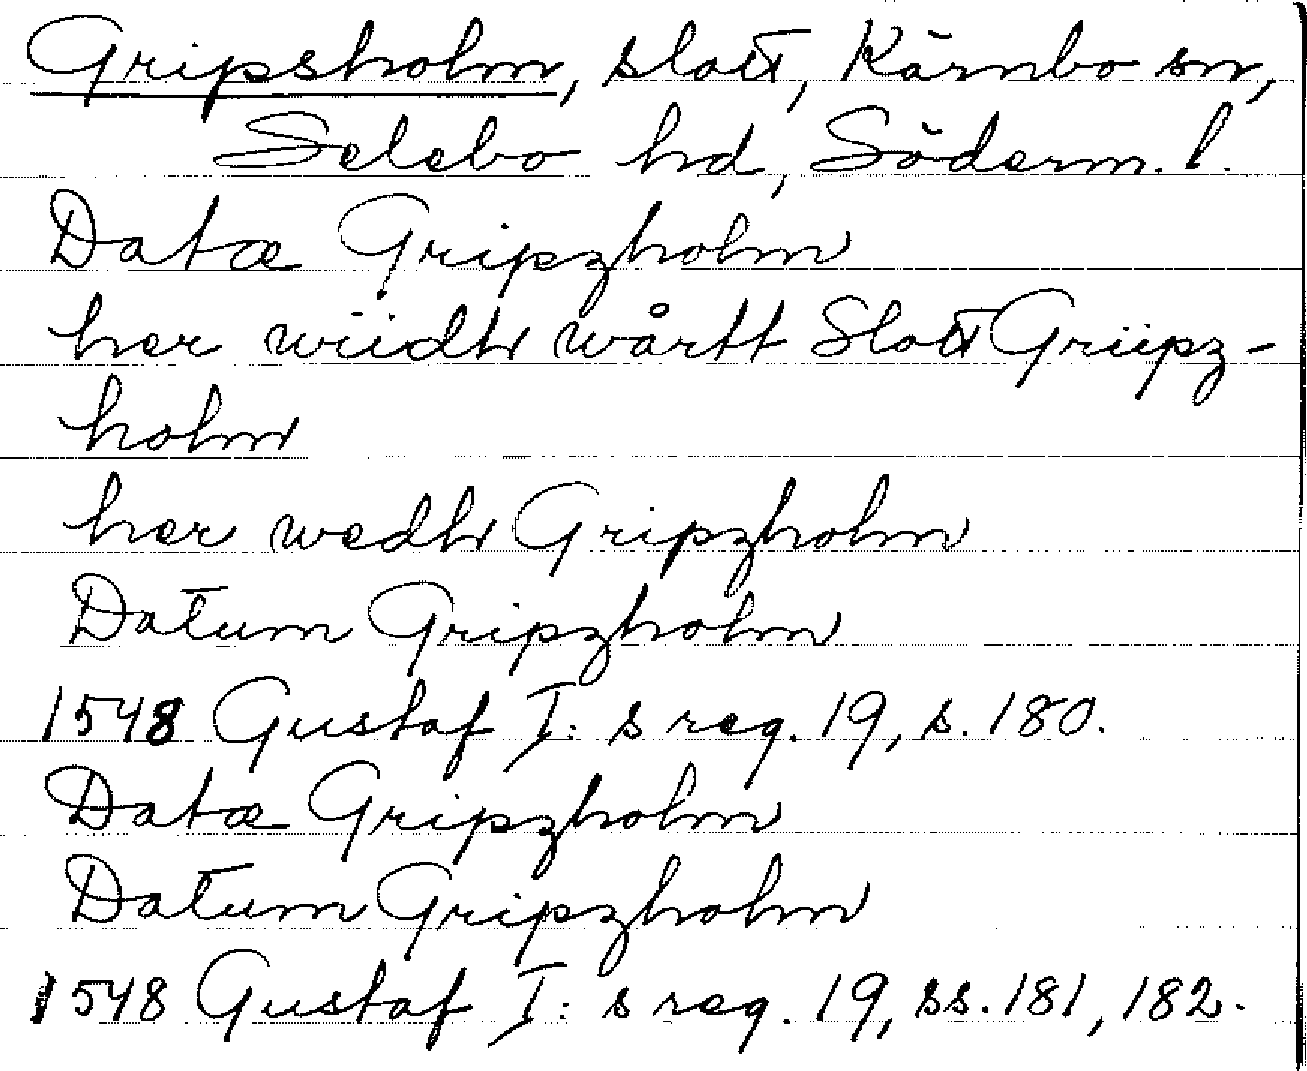 Gripsholm, slott, Kärnbo sn,
Selebo hd, Söderm. l.
Datæ Gripzholm
her wiidh wårtt Slott Griipz-
holm
her wedh Gripzholm
Datum Gripzholm
1548 Gustaf I:s reg. 19, s. 180.
Datæ Gripzholm
Datum Gripzholm
1548 Gustaf I:s reg. 19, ss. 181, 182.